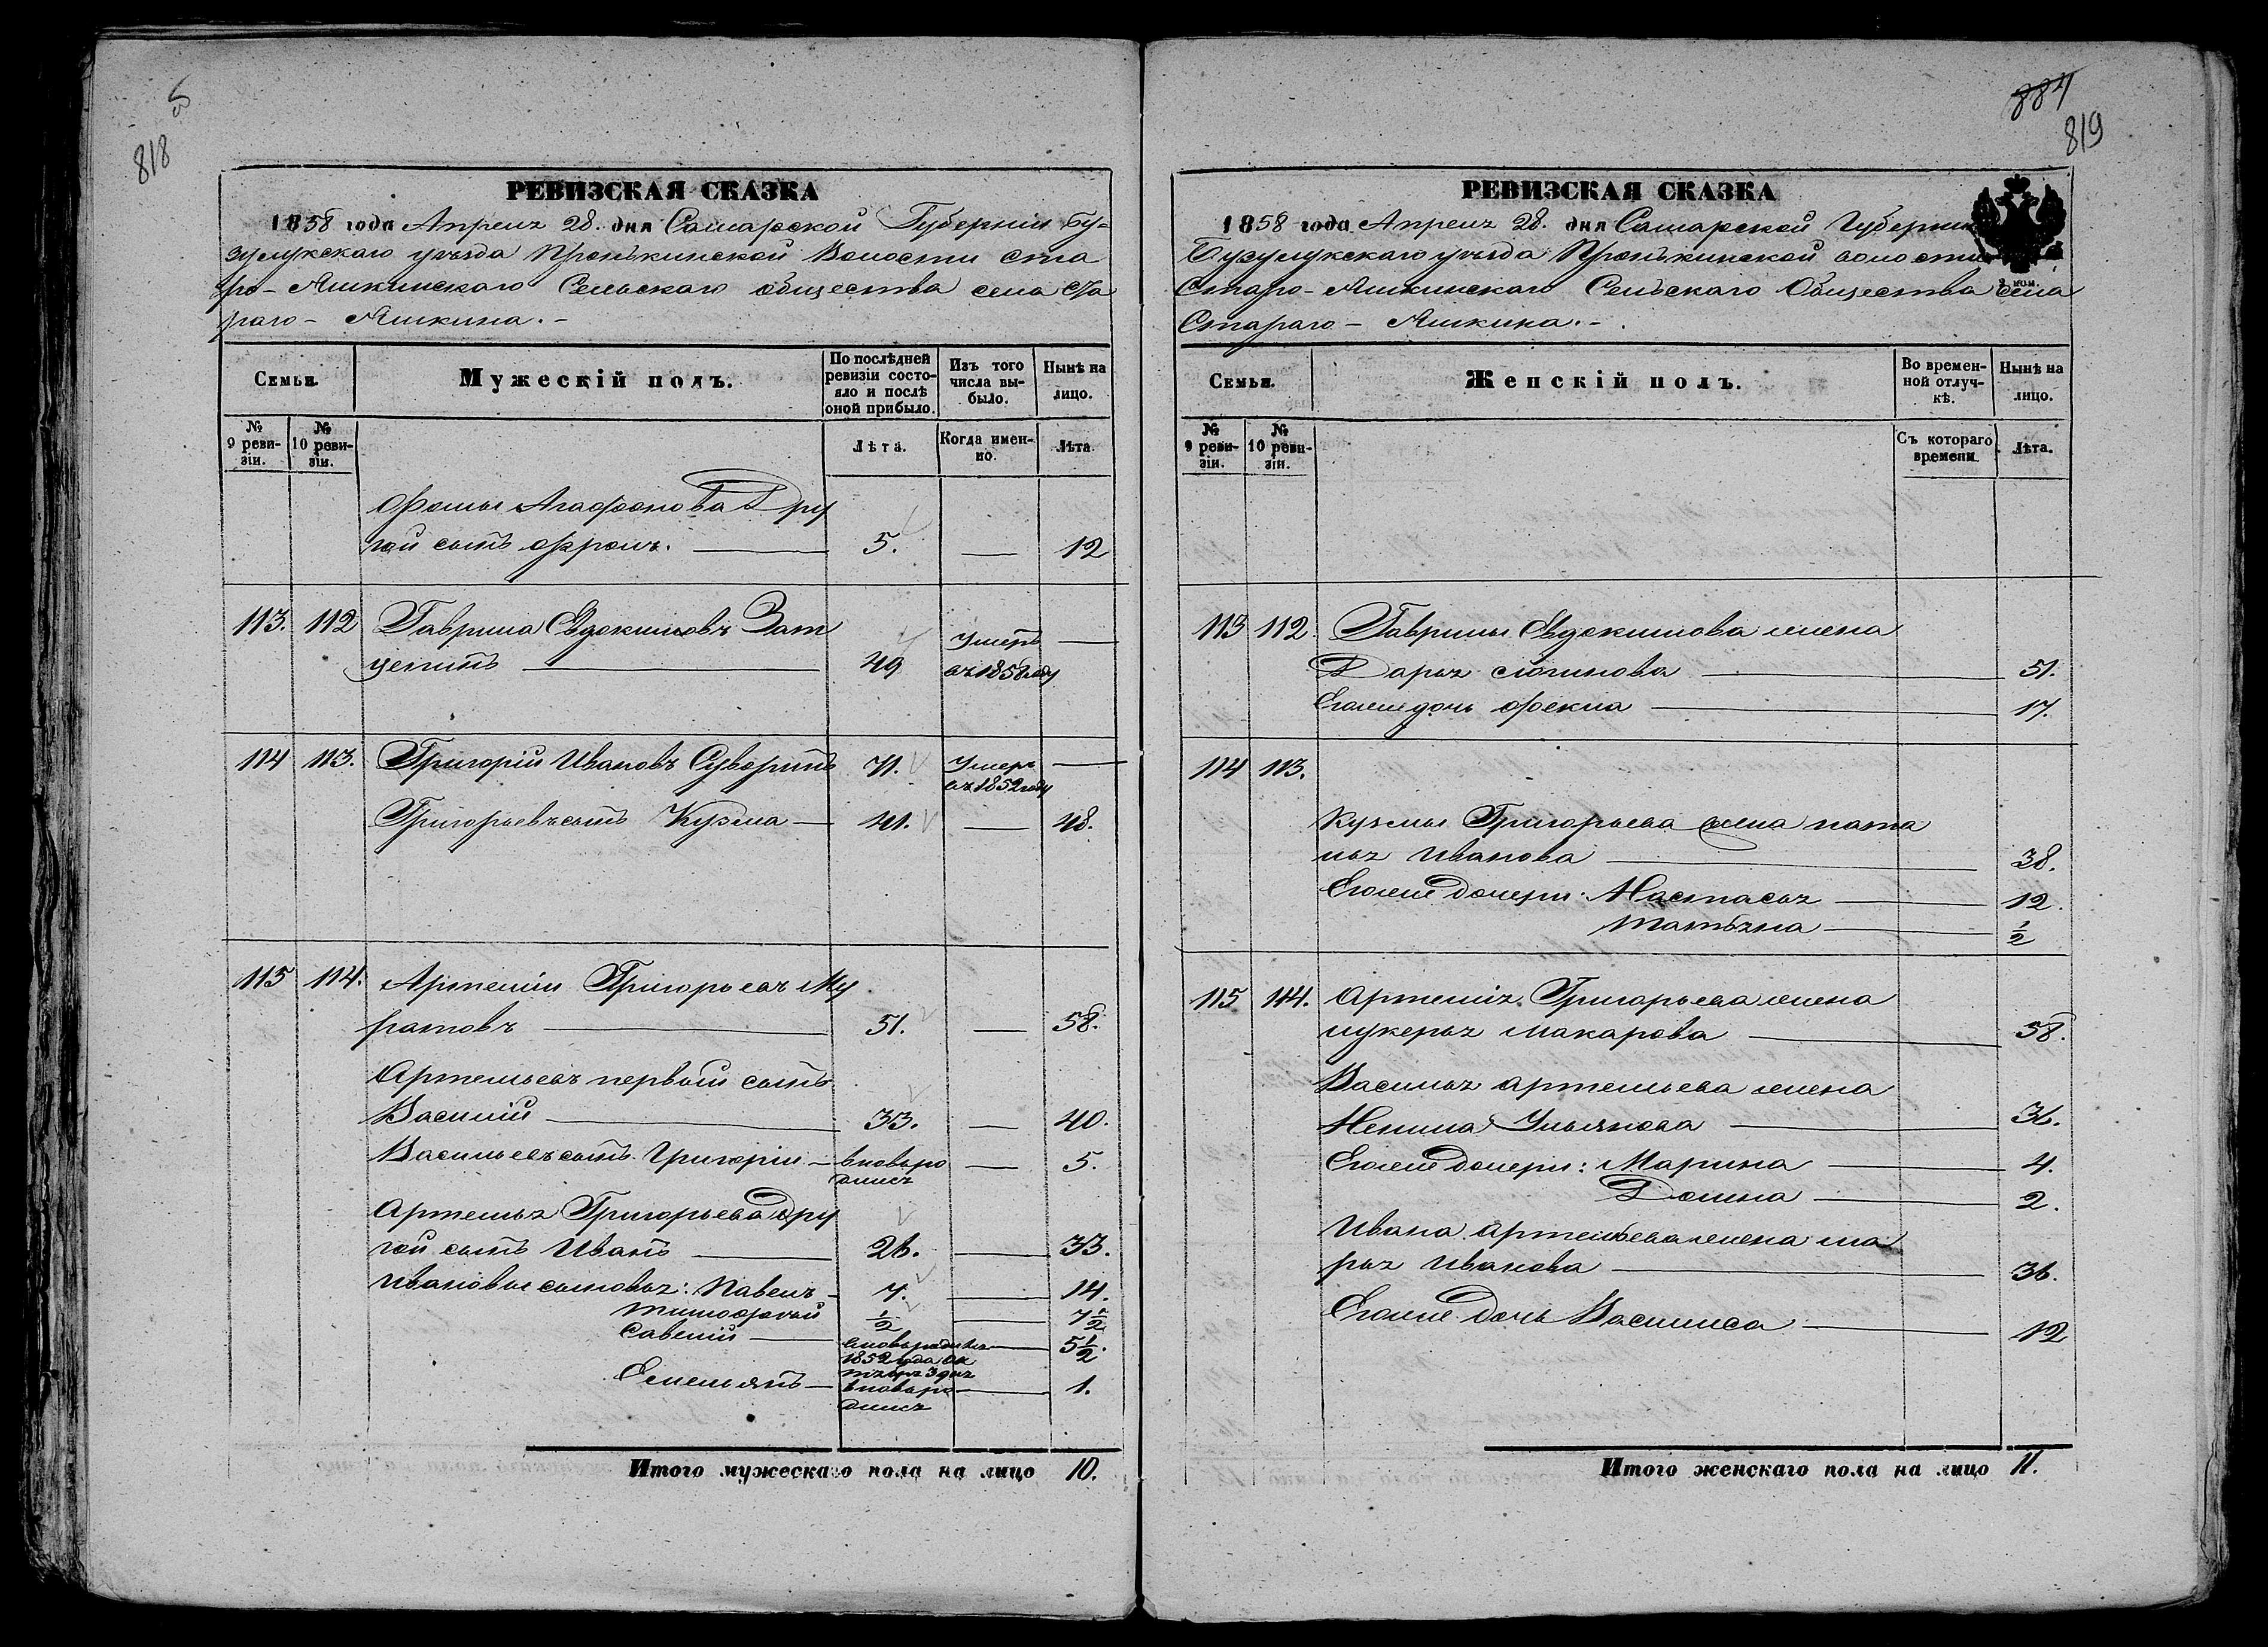 5
818
РЕВИЗСКАЯ СКАЗКА
1858 года Апреля 28. дня Самарской Губерніи Бу-
зулукскаго уѣзда Пронькинской Волости Ста
ро-Яшкинскаго Сельскаго общества села Ста
раго-Яшкина.-
Семьи.
Мужескій полъ.
По послѣдней ревизіи состо-
яло и послѣ
оной прибыло.
Изъ того
числа вы-
было.
Нынѣ на
лицо.
№
9 реви-
зіи.
№
10 реви-
зіи.
Лѣта.
Когда имен-
но.
Лѣта.
Фомы Агафонова Дру
гой сынъ Фролъ. 5. — 12
113. 112 Гаврила Евдокимовъ Зат
цепинъ 49 Умеръ
въ 1858 году —
114 113. Григорій Ивановъ Суворинъ 71. Умеръ
въ 1852 году —
Григорьевъ сынъ Кузма — 41. — 48.
115 114. Артемій Григорьевъ Му
ратовъ 51. — 58.
Артемьевъ первый сынъ
Василій 33. — 40.
Васильевъ сынъ Григорій — вновьро
дился — 5.
Артемья Григорьева дру
гой сынъ Иванъ 26. — 33.
Ивановы сыновья: Павелъ — 7. — 14.
Тимофей ½ — 7½
Савелій — вновьродился — 5½.
1852 года Ок
тября 3 дня
Емельянъ — вновьро — 1.
дился
Итого мужескаго пола на лицо 10.
884
819
РЕВИЗСКАЯ СКАЗКА
1858 года Апреля 28. дня Самарской Губерніи
Бузулукскаго уѣзда Пронькинской волости
Старо-Яшкинскаго Сельскаго Общества села
Стараго-Яшкина.-
Семьи.
Женскій полъ.
Во времен-
ной отлуч-
кѣ.
Нынѣ на
лицо.
№
9 реви-
зіи.
№
10 реви-
зіи.
Съ котораго
времени.
Лѣта.
113 112. Гаврилы Евдокимова жена
Дарья Логинова 51.
Егоже дочь Фекла 17.
114 113.
Кузмы Григорьева жена Ната
лья Иванова 38.
Егоже дочери: Настасья 12.
Татьяна ½
115 114. Артемія Григорьева жена
Лукерья Макарова 58.
Василья Артемьева жена
Ненила Ульянова 36.
Егоже дочери: Марина 4.
Домна 2.
Ивана Артемьева жена Ма
рья Иванова 36.
Егоже дочь Василиса 12
Итого женскаго пола на лицо 11.